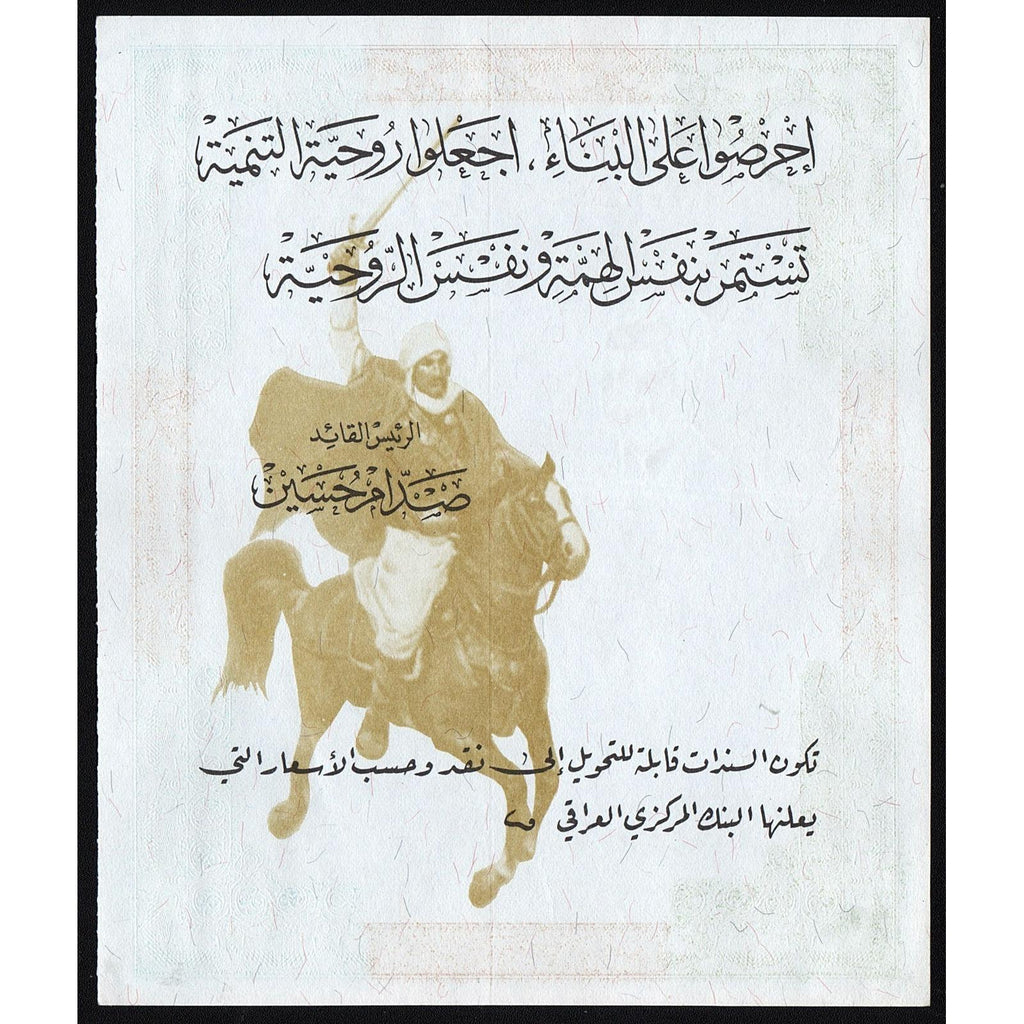 اِحْرصُوا عَلى البْنِاءِ، اجَعْلوا رُوحَيّة التنميَة
تسْتَمرّ بنفسْ الِهمّة ونفسْ الرّوُحيّة
الرئيسْ القائِد
صَدّام حُسَين
تكون السندات قابلة للتحويل إلى نقد وحسب الأسعار التي
يعلنها البنك المركزي العراقي